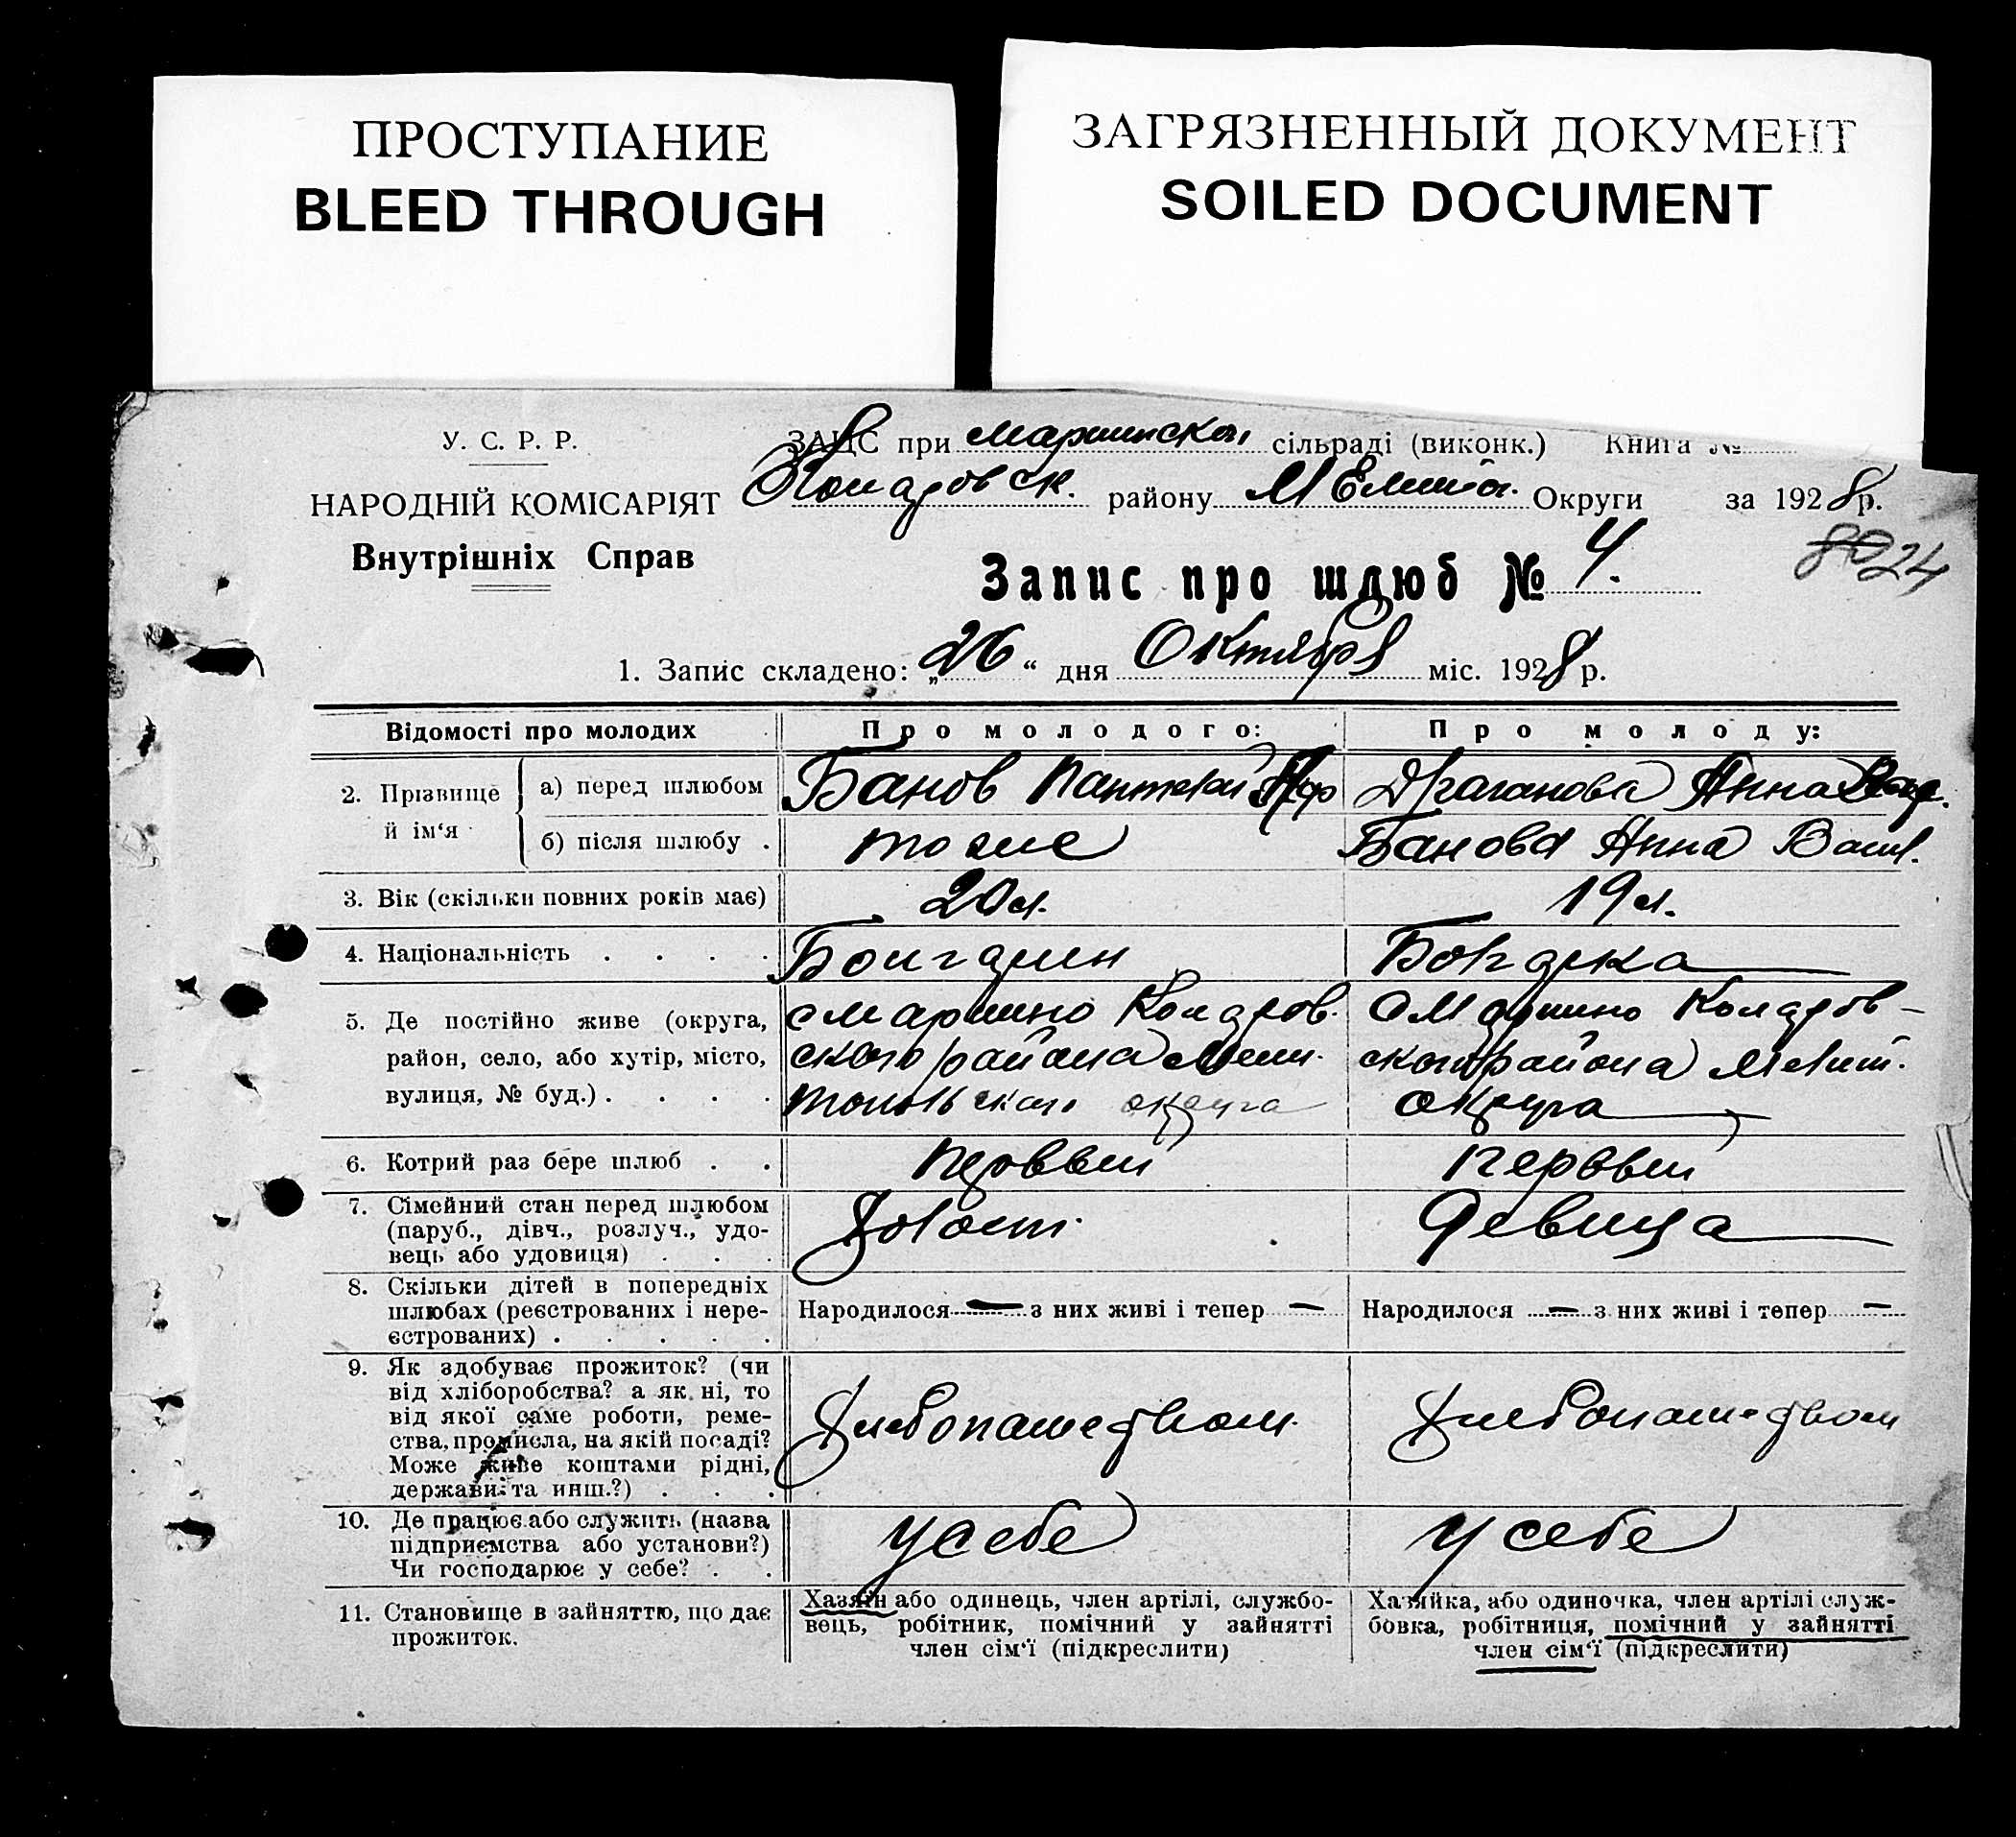 ПРОСТУПАНИЕ
BLEED THROUGH
ЗАГРЯЗНЕННЫЙ ДОКУМЕНТ
SOILED DOCUMENT
У. С. Р. Р.
НАРОДНІЙ КОМІСАРІЯТ
Внутрішніх Справ
ЗАЦС при сільраді (виконк.) Книга №
району Округи за 1928 р.
8024
Запис про шлюб № 4.
1. Запис складено: „26“ дня Октября міс. 1928 р.
Відомості про молодих Про молодого: Про молоду:
2. Прізвище й ім‘я
а) перед шлюбом Банов Пантелей Драганова Анна
б) після шлюбу . тоже Банова Анна Васил.
3. Вік (скільки повних років має) 20 л. 19 л.
4. Національність . . . . Болгарин Болгарка
5. Де постійно живе (округа,
район, село, або хутір, місто,
вулиця, № буд.) . . . .
с Марьино Коларов.
ского района Мели
топольского округа
с Марьино Коларов-
ского района Мелит.
округа
6. Котрий раз бере шлюб . . первый первый
7. Сімейний стан перед шлюбом
(паруб., дівч., розлуч., удо-
вець або удовиця) . . .
Холост. Девица
8. Скільки дітей в попередніх
шлюбах (реєстрованих і нере-
єстрованих) . . . . .
Народилося — з них живі і тепер — Народилося — з них живі і тепер —
9. Як здобуває прожиток? (чи
від хліборобства? а як ні, то
від якої саме роботи, реме-
ства, промисла, на якій посаді?
Може живе коштами рідні,
держави та инш.?) . . .
Хлебопашеством Хлебопашеством
10. Де працює або служить (назва
підприємства або установи?)
Чи господарює у себе? . .
у себе у себе
11. Становище в зайняттю, що дає
прожиток.
Хазяїн або одинець, член артілі, службо-
вець, робітник, помічний у зайнятті
член сім‘ї (підкреслити)
Хазяйка, або одиночка, член артілі служ-
бовка, робітниця, помічний у зайнятті
член сім‘ї (підкреслити)